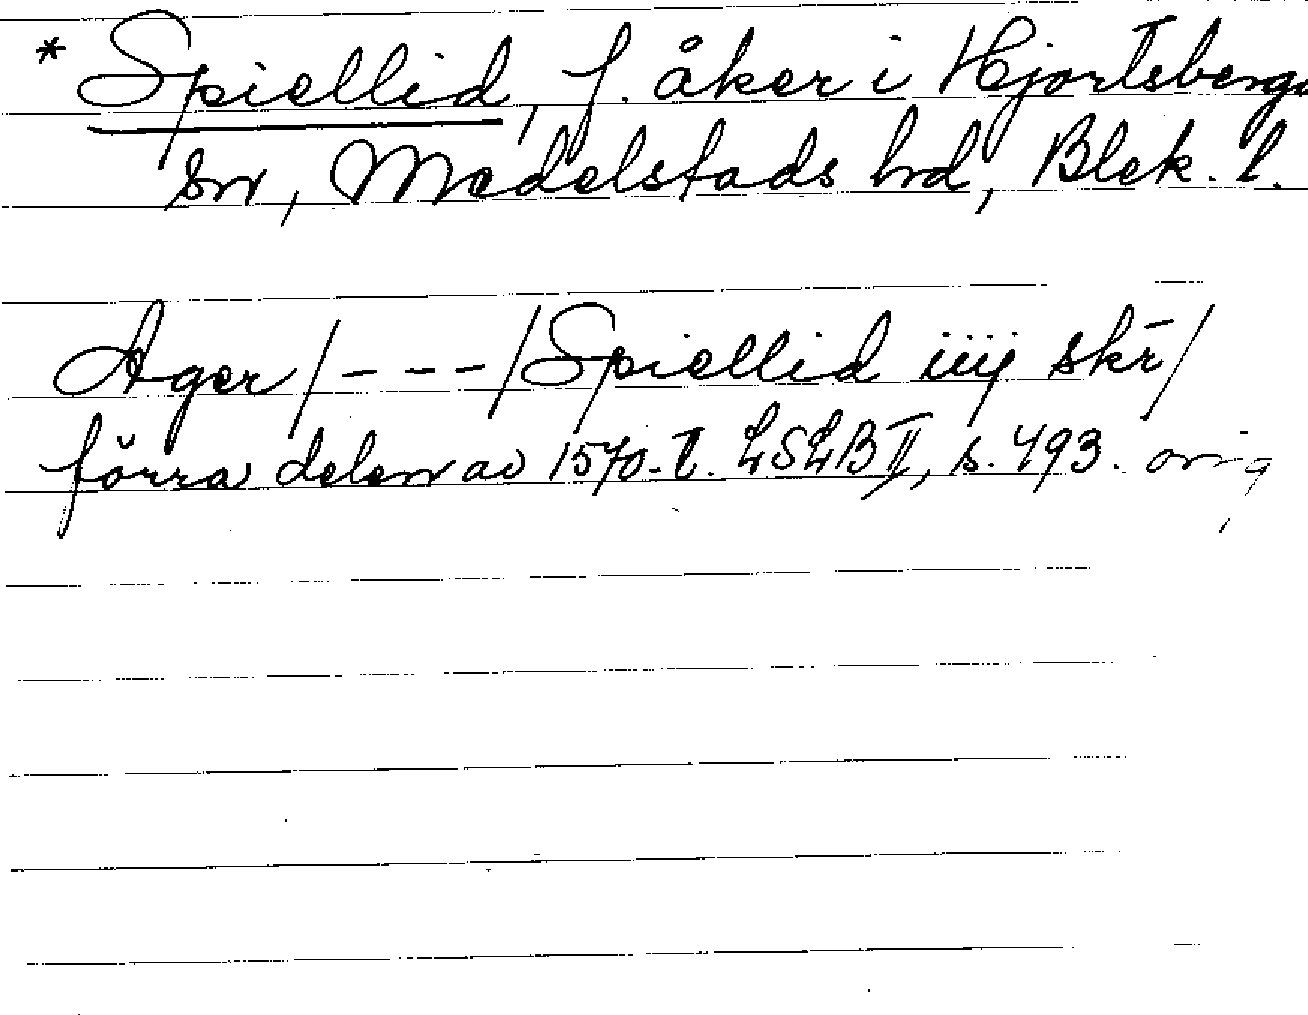 * Spiellid, f. åker i Hjortsberga
sn, Medelstads hd, Blek. l.
Ager/---/Spiellid iiij skr̄/
förra delen av 1570-t. LSLB II, s. 493. orig